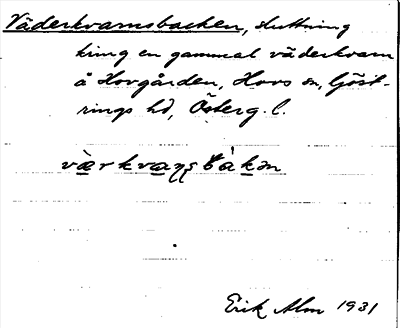 Väderkvarnsbacken, sluttning
kring en gammal väderkvarn
å Hovgården, Hovs sn, Göst-
rings hd, Österg. l.
Erik Alm 1931